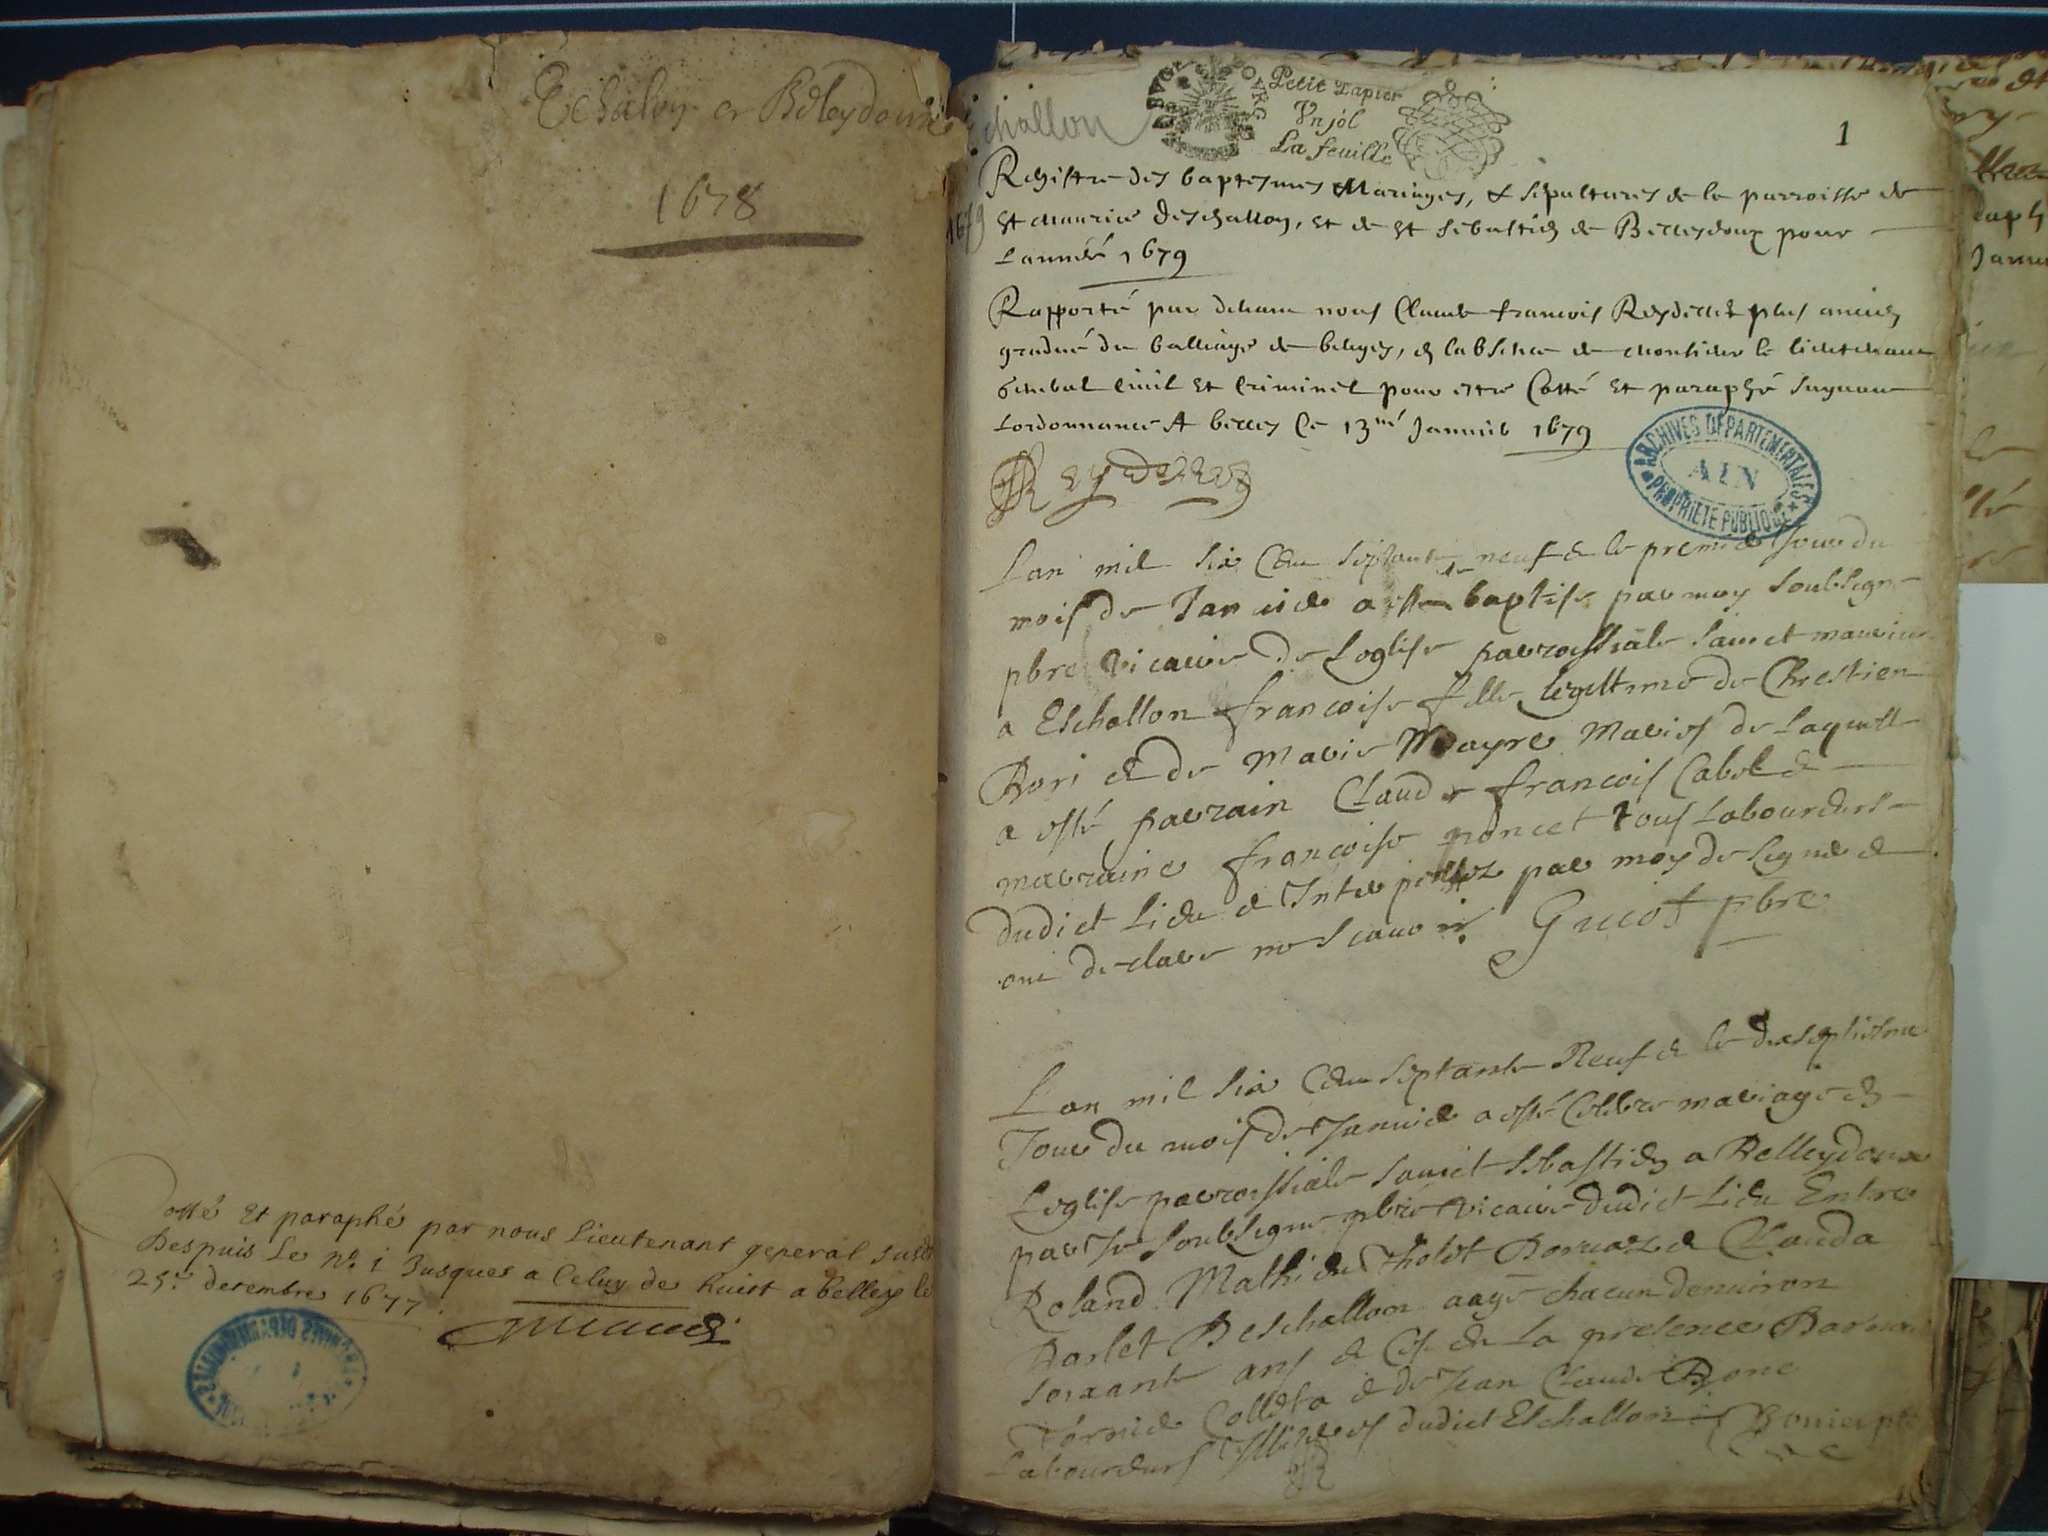 Echalon et Belleydoux
1678
Cotté Et paraphé par nous Lieutenant general susdit
Despuis Le n° 1 Jusques a Celuy de huict a belley le
25e decembre 1677
Echallon
Petit Papier
Un sol
La feuille
1
1679
Registre des baptesmes Mariages, & sepultures de la parroisse de
St Maurice deschallon, et de St sebastien de Belleydoux pour
Lannéé 1679
Rapporté par devant nous Claude françois Reydellet plus ancien
gradué du balliage de bugey, en labsence de Monsieur le lieutenant
general Civil et Criminel pour estre Cotté et paraphé suyvant
Lordonnance A belley Ce 13me Janvier 1679
Reydellet
ARCHIVES DÉPARTEMENTALES
AIN
PROPRIÉTÉ PUBLIQUE
Lan mil six Cens septante neuf & le premier Jour du
mois de Janvier a esté baptisé par moy soubsigné
pbre vicaire de Leglise parrossiale sainct maurice
a Eschallon françoise fille legitime de Chrestien
Bori & de Marie Mayre Mariés de laquelle
a esté parrain Claude françois Cabol &
marraine françoise poncet tous Laboureurs
dudict Lieu & Interpellez par moy de signer
ont declaré ne scavoir. Guiot pbre
Lan mil six Cens septante Neuf & le dixseptiesme
Jour du mois de Janvier a esté Celebré mariage en
Leglise parrossiale sainct sebastien a Belleydoux
par Je soubsigné pbre vicaire dudict Lieu Entre
Roland Mathieu Tholet Borraz & Clauda
Barlet DEschallon aagé chacun denviron
soixante ans & Ce en la presence
Colleta & de Jean Claude
Laboureurs dudict Eschallon